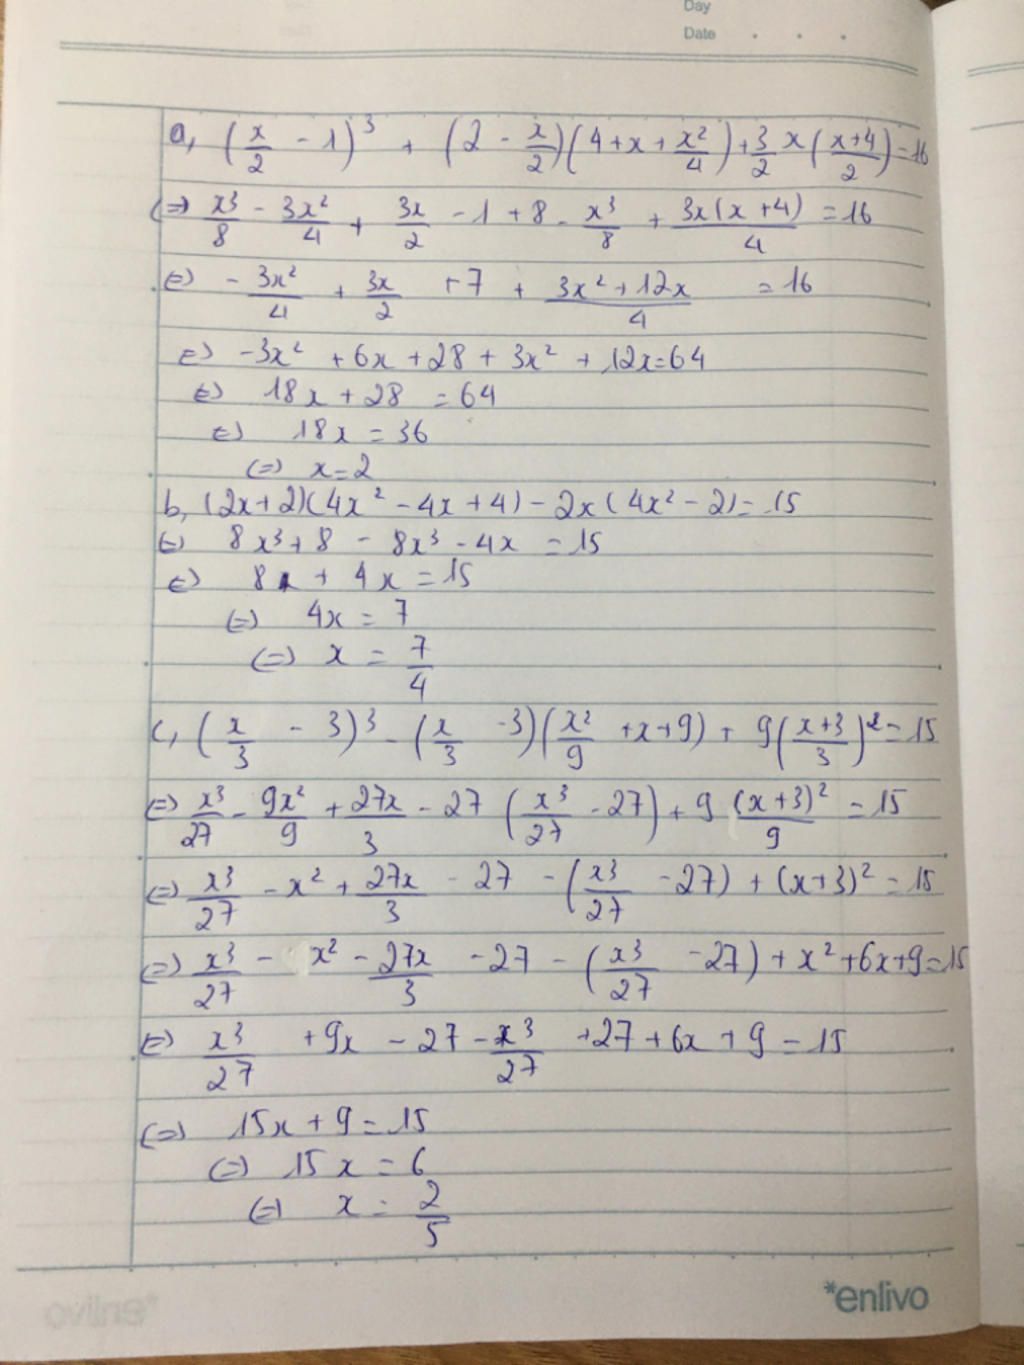 Day
Date . . .
a, (x/2 - 1)³ + (2 - x/2)(4+x+x²/4)+3/2 x(x+4/2)=16
(=) x³/8 - 3x²/4 + 3x/2 - 1 + 8 - x³/8 + 3x(x+4)/4 = 16
(=) - 3x²/4 + 3x/2 +7 + 3x²+12x/4 = 16
(=) -3x² + 6x + 28 + 3x² + 12x=64
(=) 18x + 28 = 64
(=) 18x = 36
(=) x=2
b, (2x+2)(4x² - 4x + 4) - 2x(4x² - 2) = 15
(=) 8x³ + 8 - 8x³ - 4x = 15
(=) 8 + 4x = 15
(=) 4x = 7
(=) x = 7/4
c, (x/3 - 3)³ - (x/3 -3)(x²/9 +x+9) + 9(x+3/3)²=15
(=) x³/27 - 9x²/9 + 27x/3 - 27 (x³/27 - 27) + 9 (x+3)²/9 = 15
(=) x³/27 - x² + 27x/3 - 27 - (x³/27 - 27) + (x+3)² = 15
(=) x³/27 - x² - 27x/3 - 27 - (x³/27 - 27) + x² + 6x+9=15
(=) x³/27 + 9x - 27 - x³/27 + 27 + 6x + 9 = 15
(=) 15x + 9 = 15
(=) 15x = 6
(=) x = 2/5
*enlivo